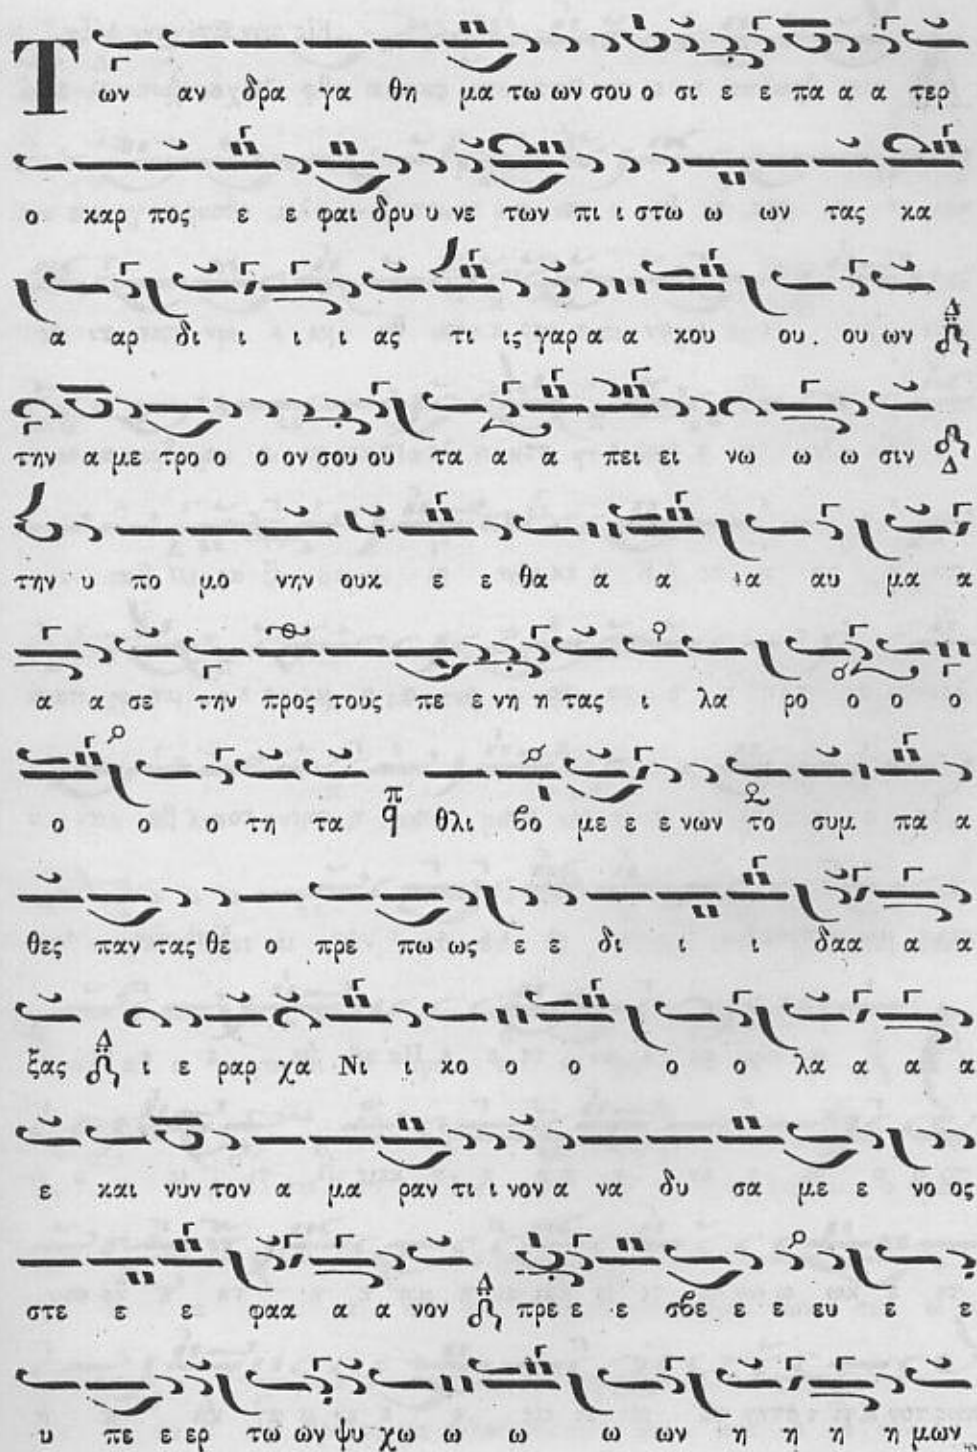 Των αν δρα γα θη μα τω ων σου ο σι ε ε πα α α τερ
ο καρ πος ε ε φαι δρυ υ νε των πι ι στω ω ων τας κα
α αρ δι ι ι ι ας τι ις γαρ α α κου ου. ου ων Δ
την α με τρο ο ο ον σου ου τα α α πει ει νω ω ω σιν Δ
την υ πο μο νην ουκ ε ε θα α α α αυ μα α
α α σε την προς τους πε ε νη η τας ι λα ρο ο ο ο
ο ο ο τη τα π q θλι βο με ε ε νων το συμ πα α
θες παν τας θε ο πρε πω ως ε ε δι ι ι δαα α α
ξας Δ ι ε ραρ χα Νι ι κο ο ο ο ο λα α α α
ε και νυν τον α μα ραν τι ι νον α να δυ σα με ε νο ος
στε ε ε φαα α α νον Δ πρε ε ε σβε ε ε ευ ε ε
υ πε ε ερ τω ων ψυ χω ω ω ω ων η η η η μων